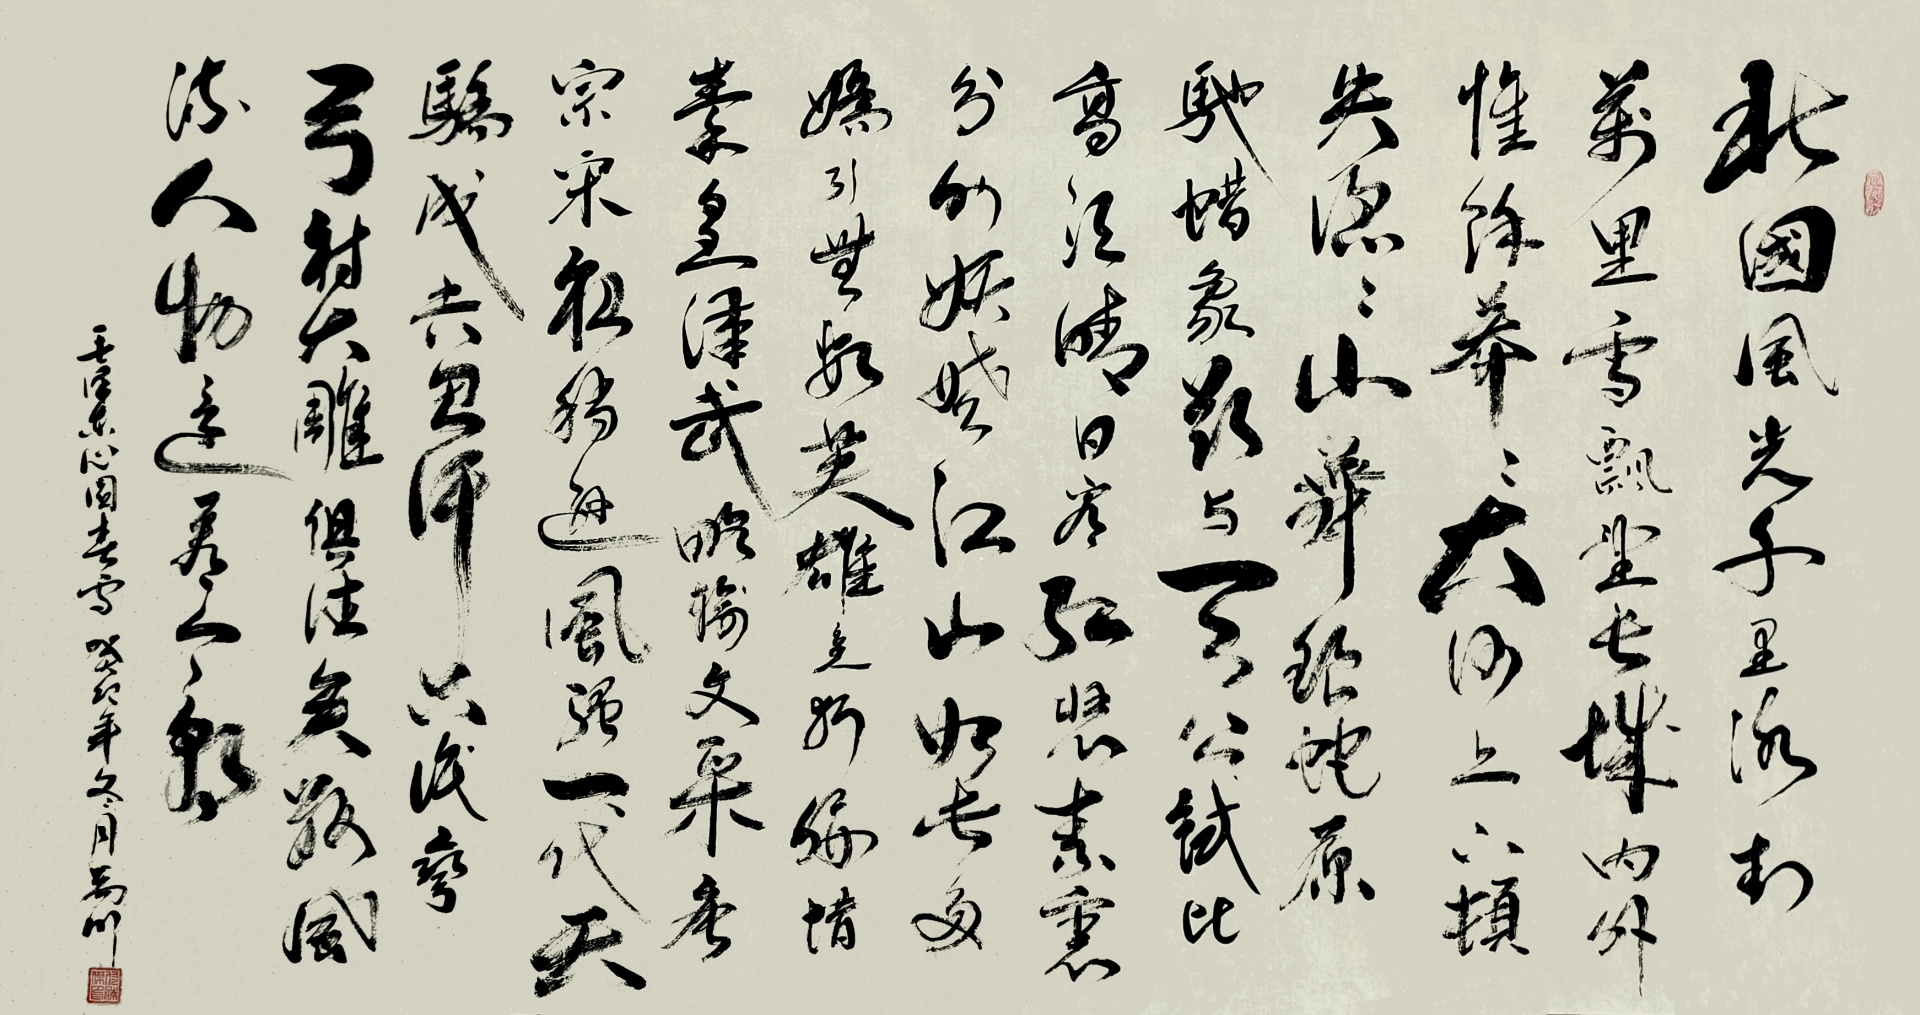 北國風光千里冰封
萬里雪飄望長城內外
惟餘莽〻大河上下頓
失滔〻山舞銀蛇原
馳蜡象欲与天公試比
高須晴日看紅裝素裹
分外妖嬈江山如此多
嬌引無數英雄竞折腰惜
秦皇漢武略輸文采唐
宗宋祖稍遜風騷一代天
驕成吉思汗只識彎
弓射大雕俱往矣數風
流人物還看今朝
毛澤東沁園春雪 癸卯年冬月